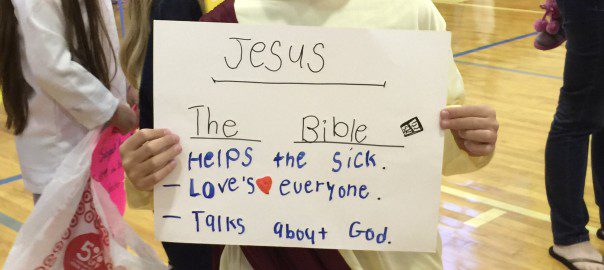 Jesus
The Bible
- Helps the sick.
- Love's everyone.
- Talks about God.